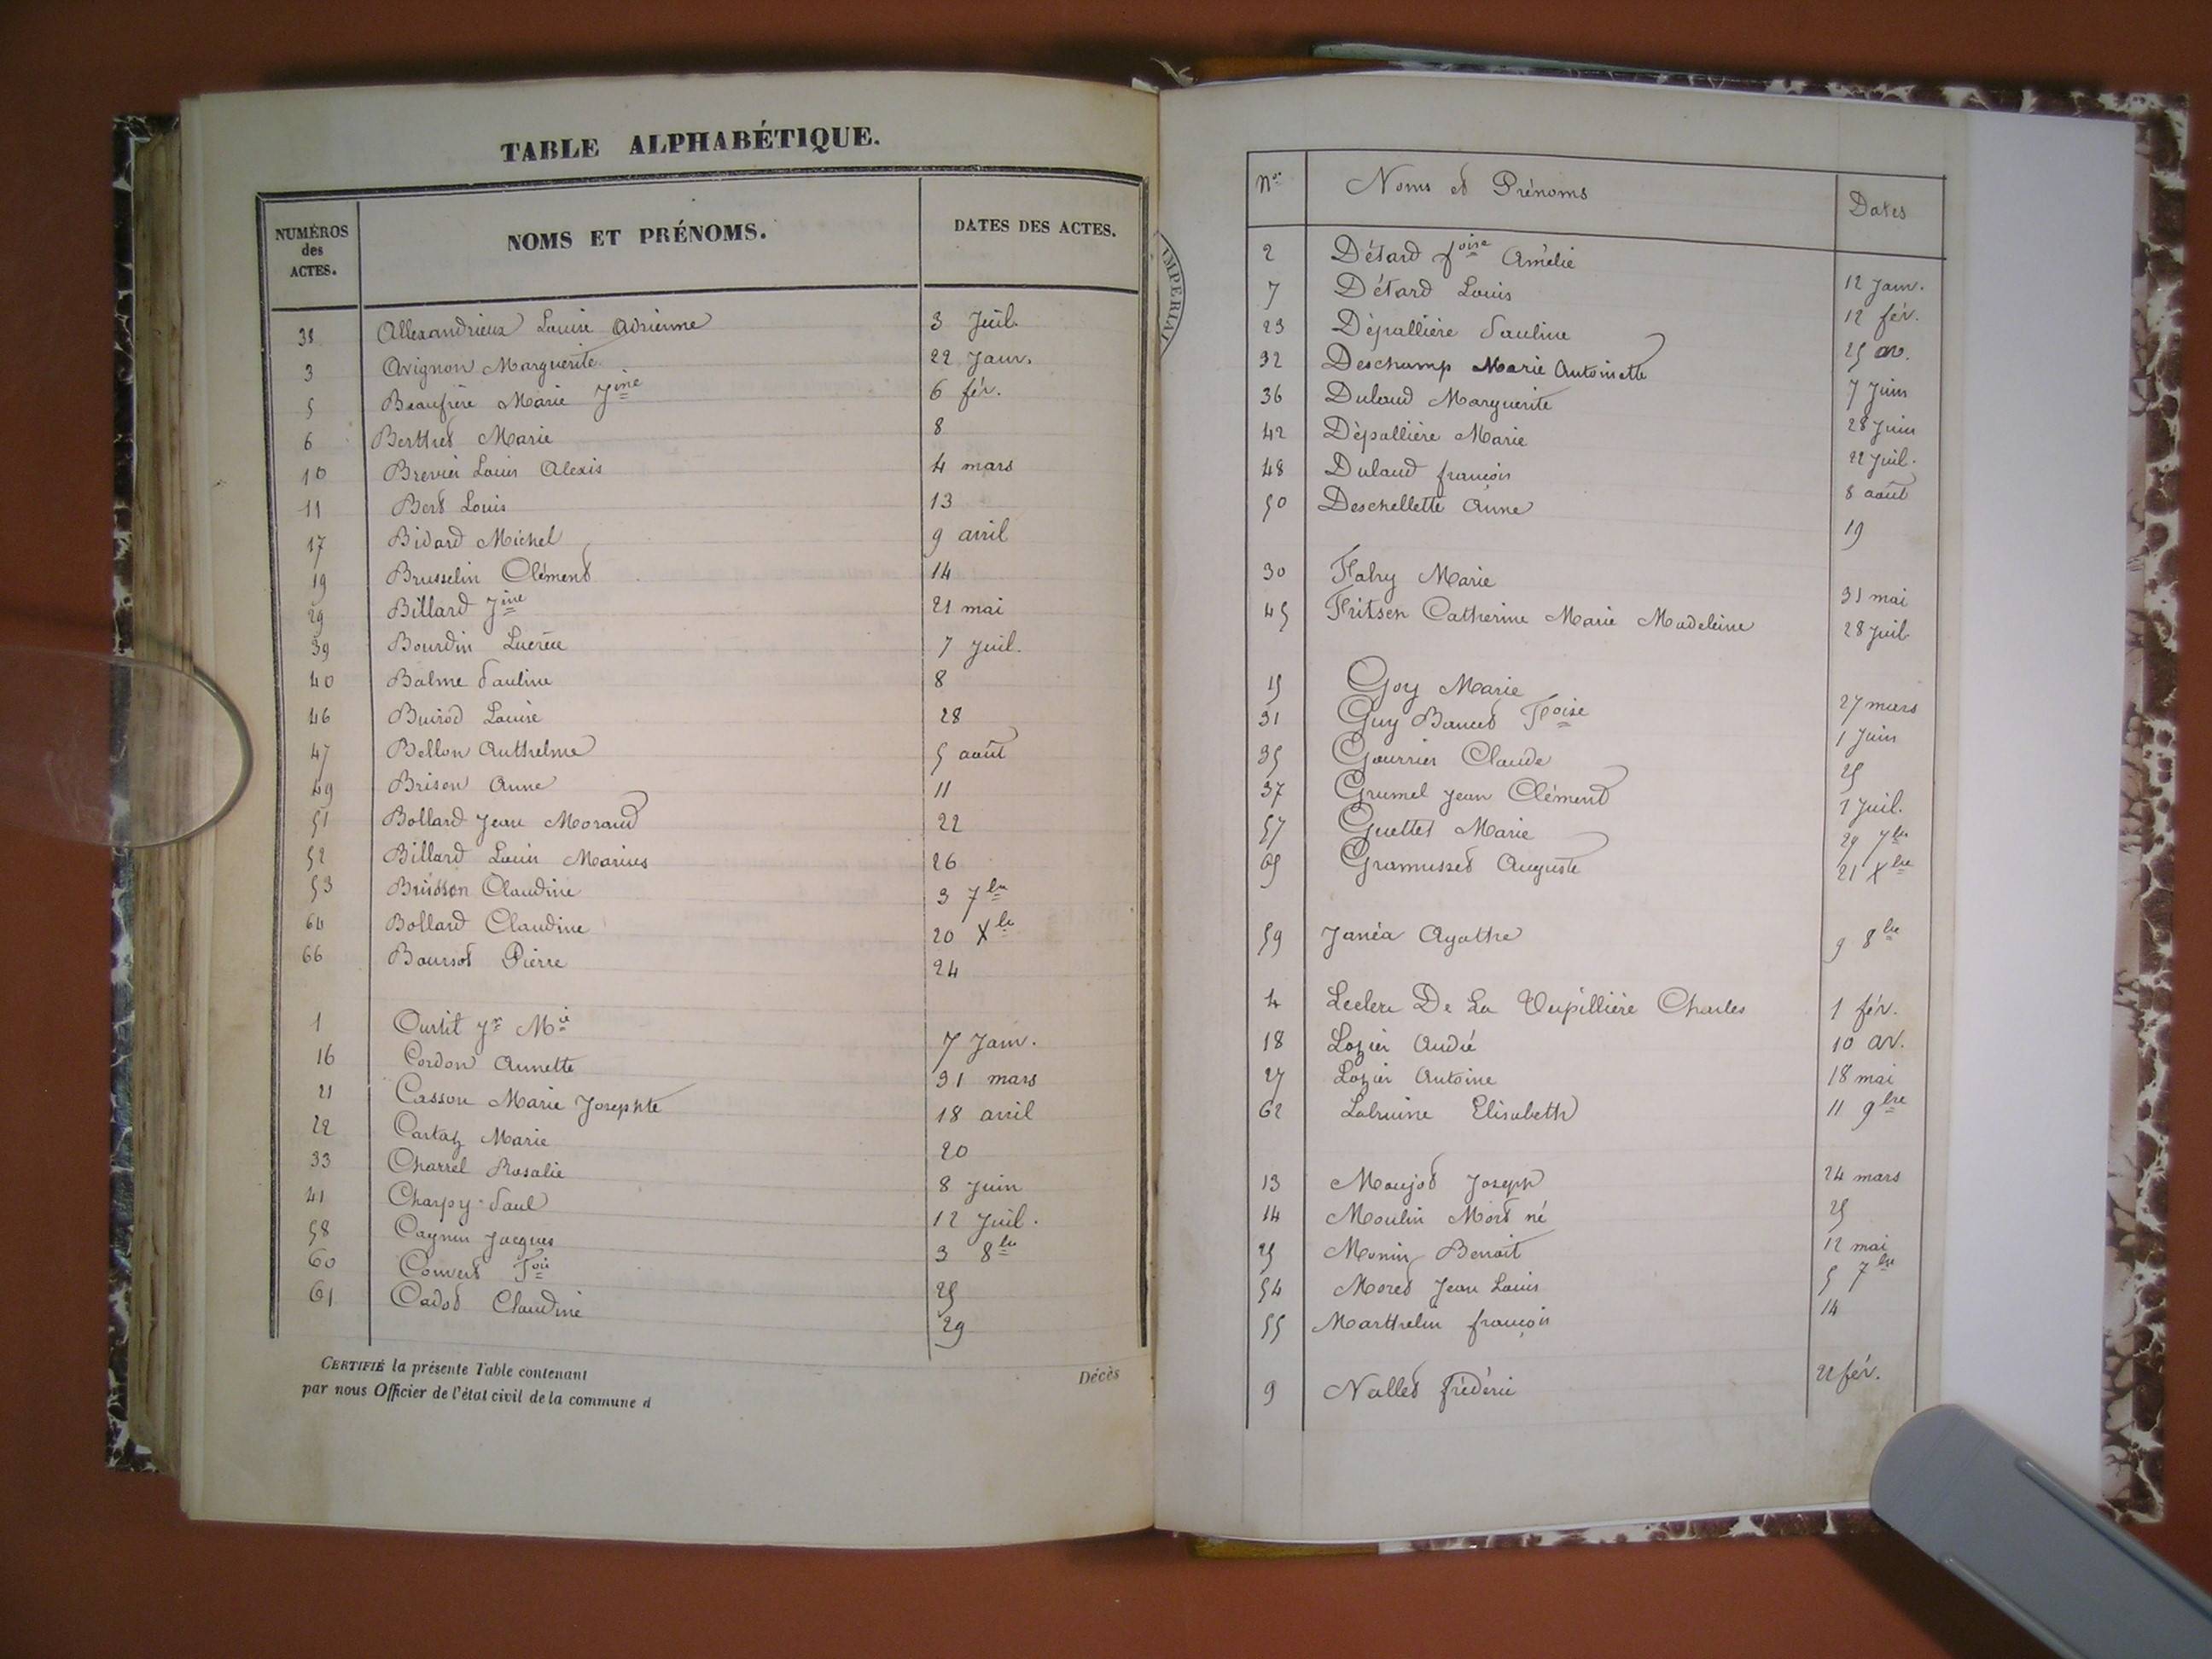 TABLE ALPHABÉTIQUE.
NUMÉROS des ACTES. NOMS ET PRÉNOMS. DATES DES ACTES.
38 Allexandrieux Louise Adrienne 3 Juil.
3 Avignon Marguerite 22 Janv.
5 Beaufrère Marie Jine 6 fév.
6 Berthet Marie 8
10 Brevier Louis Alexis 4 mars
11 Bert Louis 13
17 Bidard Michel 9 avril
19 Brusselin Clément 14
29 Billard Jine 21 mai
39 Bourdin Lucrèce 7 Juil.
40 Balme Pauline 8
46 Buirod Louise 28
47 Bellon Anthelme 5 août
49 Brison Anne 11
51 Bollard Jean Morand 22
52 Billard Louis Marius 26
53 Claudine 3 7bre
64 Bollard Claudine 20 Xbre
66 Boursot Pierre 24
1 Curtit Jn Mie 7 Janv.
16 Cordon Annette 31 mars
21 Casson Marie Josephte 18 avril
22 Cartaz Marie 20
33 Charrel Rosalie 8 Juin
41 Charpy Paul 12 Juil.
58 Jacques 3 8bre
60 Convert 25
61 Cadot Claudine 29
CERTIFIÉ la présente Table contenant Décès
par nous Officier de l'état civil de la commune d
IMPÉRIAL
Nos Noms et Prénoms Dates
2 Détard foise Amélie 12 Janv.
7 Détard Louis 12 fév.
23 Dépallière Pauline 25 av.
32 Deschamp Marie Antoinette 7 Juin
36 Dulaud Marguerite 28 Juin
42 Dépallière Marie 22 Juil.
48 Dulaud françois 8 août
50 Deschellette Anne 19
30 Falry Marie 31 mai
45 Fritsch Catherine Marie Madeleine 28 Juil.
15 Goy Marie 27 mars
31 Guy Bancet Foise 1 Juin
35 Gourrier Claude 25
37 Grumel Jean Clément 1 Juil.
57 Guettet Marie 29 7bre
65 Gramusset Auguste 21 Xbre
59 Janéa Agathe 9 8bre
4 Leclerc De La Charles 1 fév.
18 Lozier André 10 av.
27 Lozier Antoine 18 mai
62 Labruine Elisabeth 11 9bre
13 Moujot Joseph 24 mars
14 Moulin Mort né 25
25 Monin Benoit 12 mai
54 Moret Jean Louis 5 7bre
55 Marthelin françois 14
9 Nallet frédéric 22 fév.